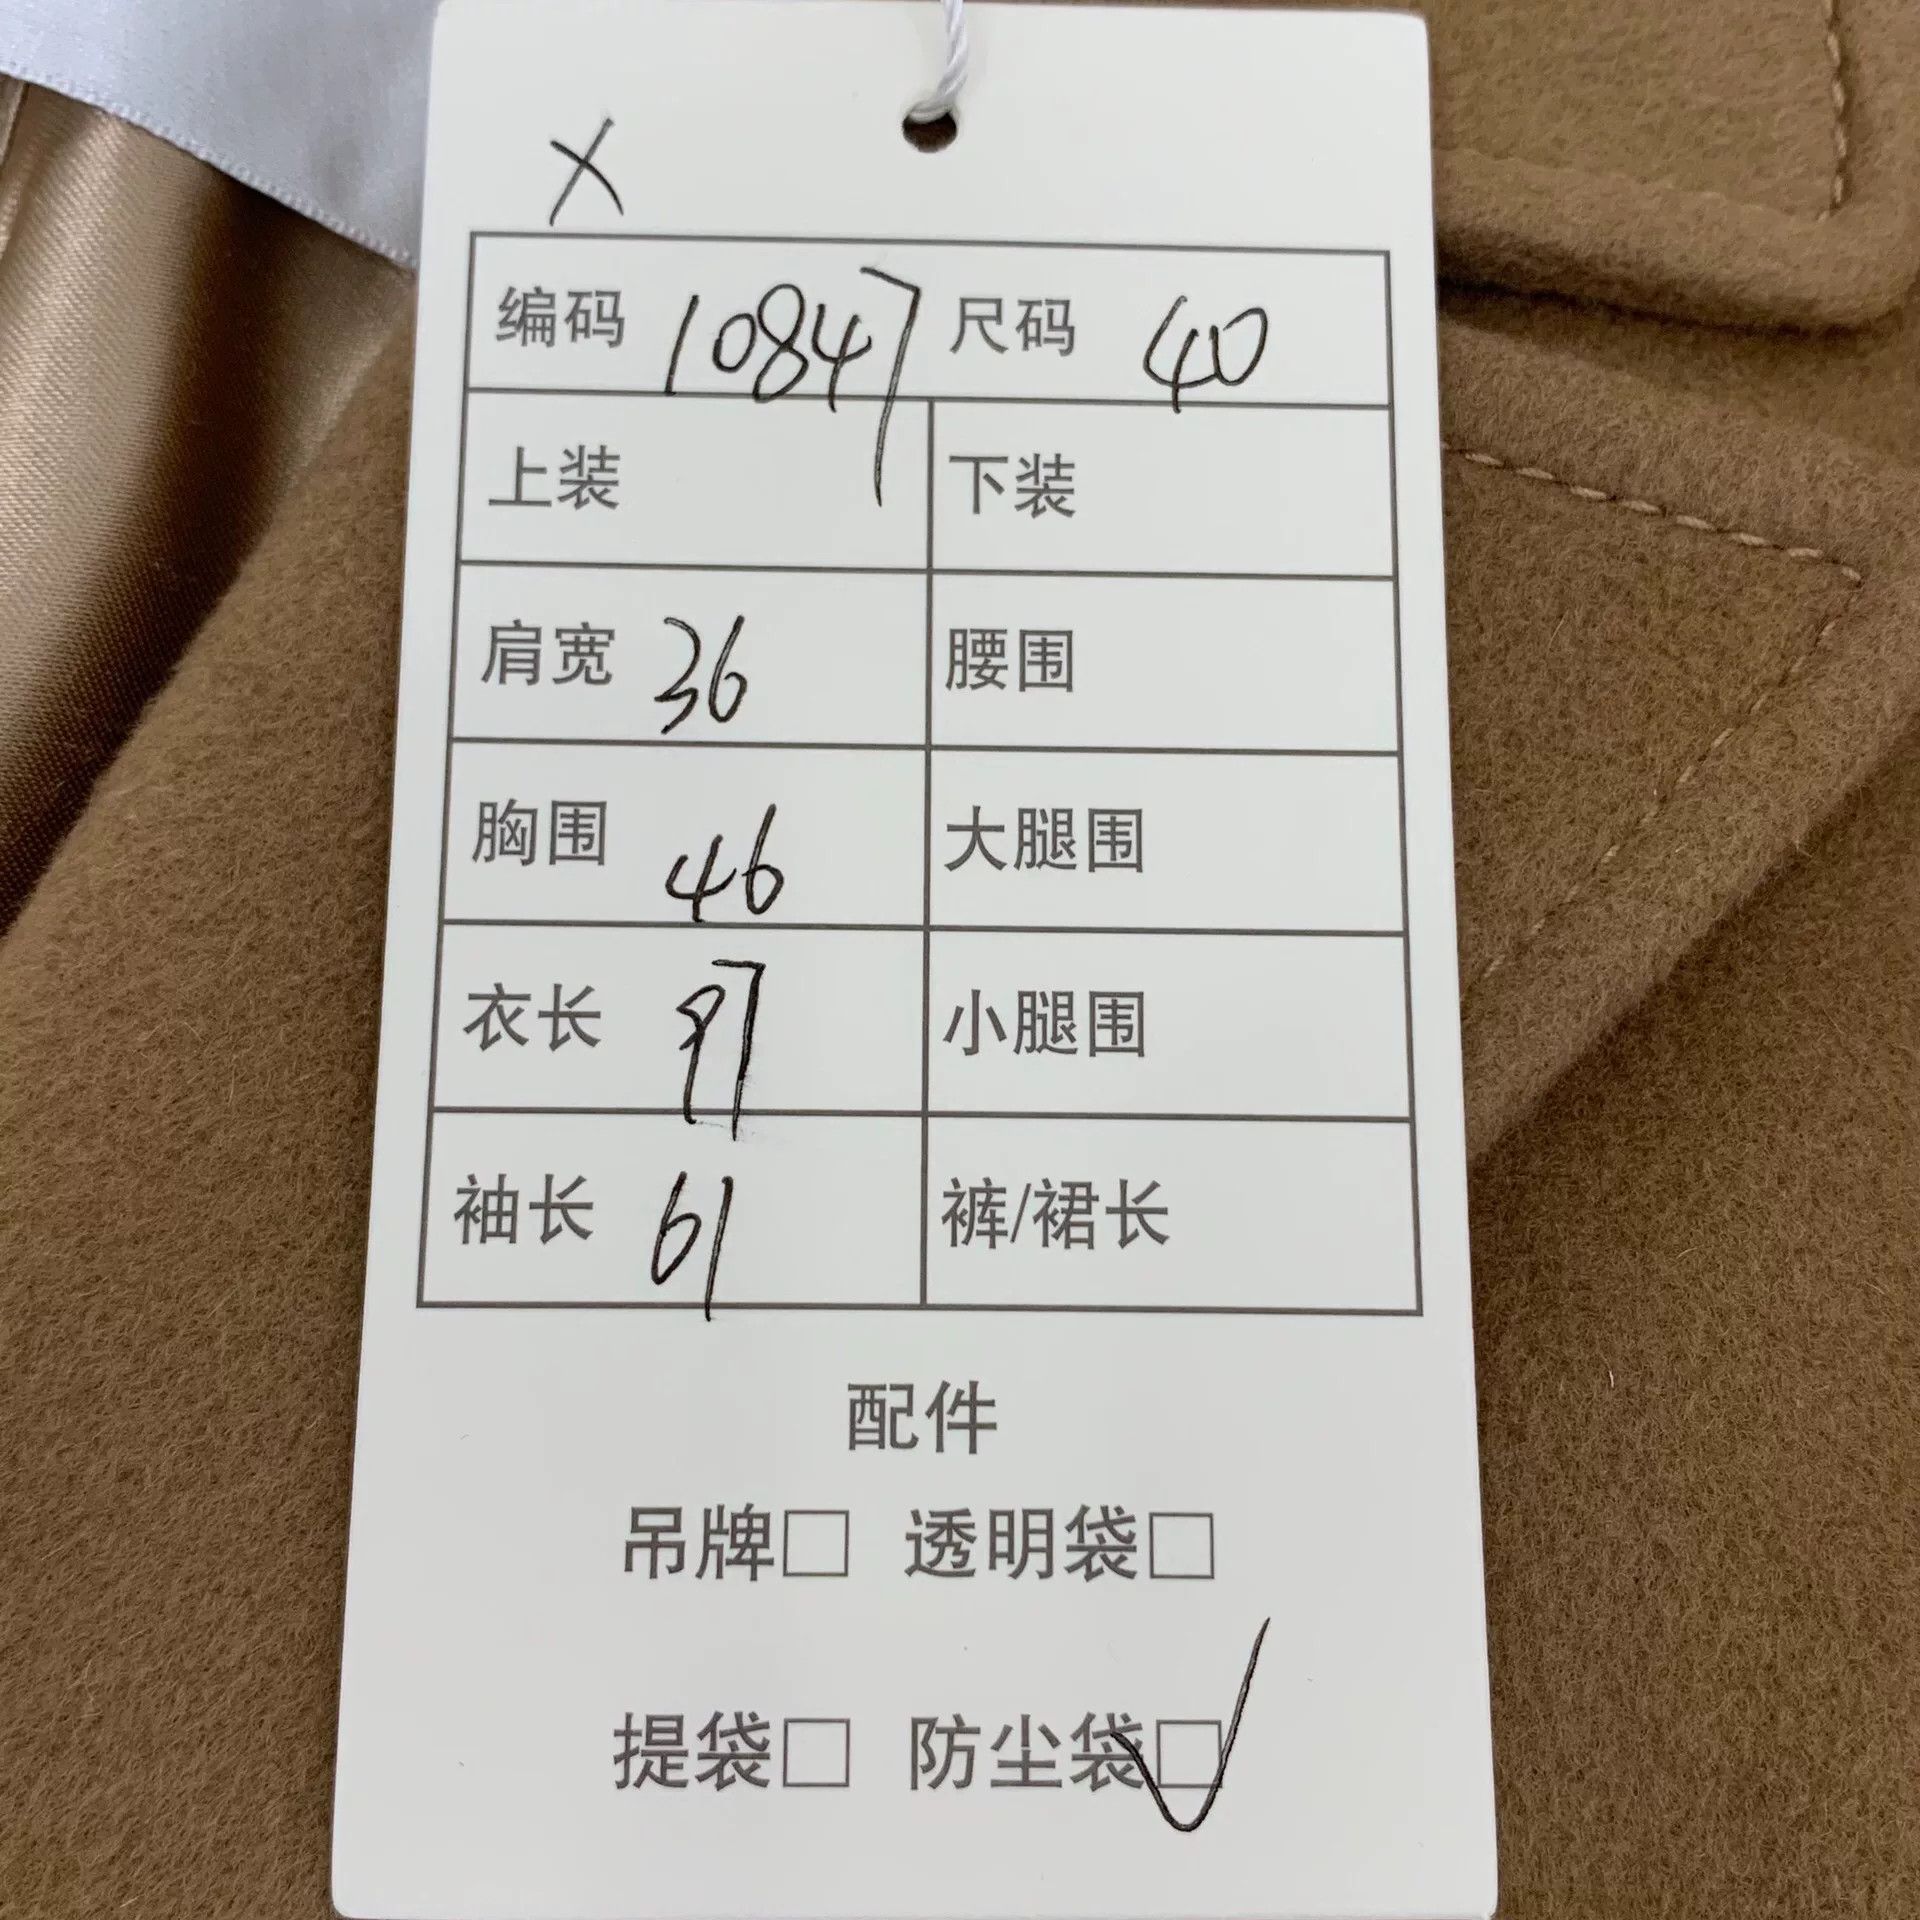 X
编码 10847 尺码 40
上装 下装
肩宽 36 腰围
胸围 46 大腿围
衣长 97 小腿围
袖长 61 裤/裙长
配件
吊牌□ 透明袋□
提袋□ 防尘袋☑